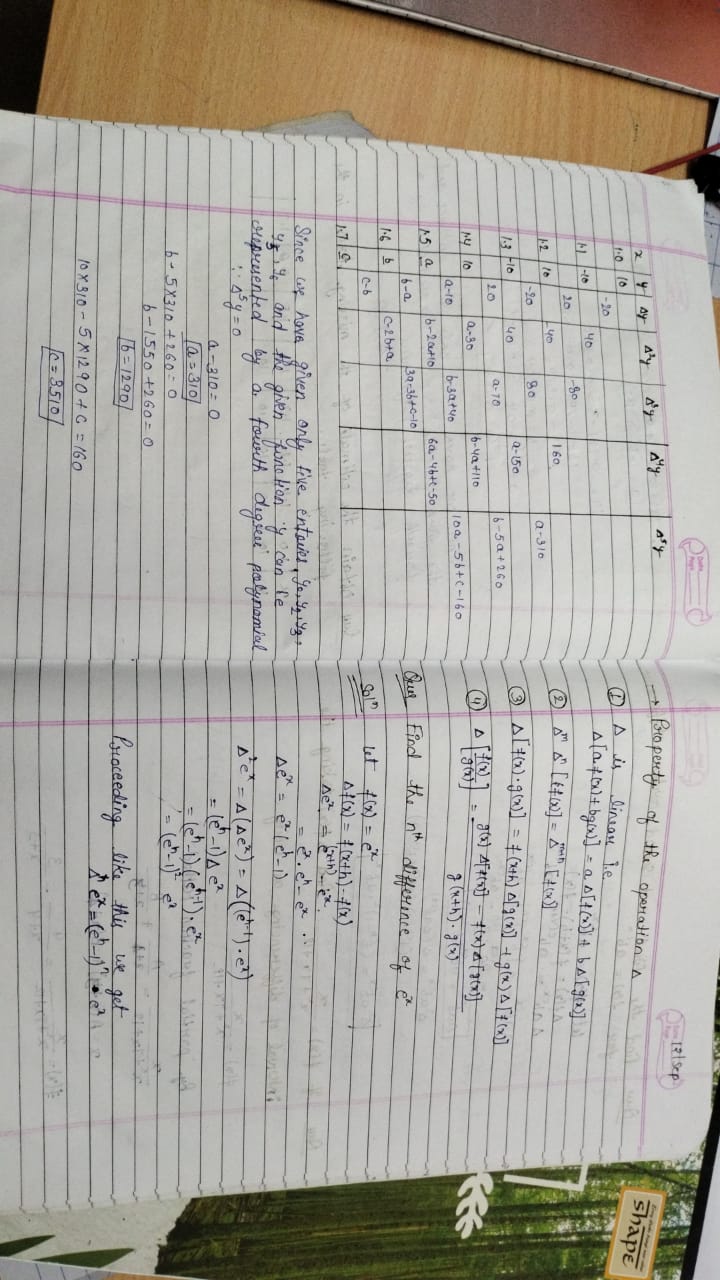 Date
Page
x y Δy Δ²y Δ³y Δ⁴y Δ⁵y
1.0 10
-20
1.1 -10 40
20 -80
1.2 10 -40 160
-20 80 a-310
1.3 -10 40 a-150
20 a-70 b-5a+260
1.4 10 a-30 b-4a+110
a-10 b-3a+40 10a-5b+c-160
1.5 a b-2a+10 6a-4b+c-50
b-a 3a-3b+c-10
1.6 b c-2b+a
c-b
1.7 c
Since we have given only five enteries, y₀, y₁, y₂, y₃,
and the given function y can be
represented by a fourth degree polynomial
∵ Δ⁵y=0
a-310=0
a=310
b-5×310+260=0
b-1550+260=0
b=1290
10×310-5×1290+c=160
c=3510
Date
Page
12/Sep
→ Property of the operation Δ
① Δ is linear i.e.
Δ[a f(x)+bg(x)] = a Δ[f(x)] + b Δ[g(x)]
② Δᵐ Δⁿ [f(x)] = Δᵐ⁺ⁿ [f(x)]
③ Δ[f(x)·g(x)] = f(x+h) Δ[g(x)] + g(x) Δ[f(x)]
④ Δ [f(x)/g(x)] = g(x) Δ[f(x)] - f(x) Δ[g(x)] / g(x+h)·g(x)
Ques Find the nᵗʰ difference of eˣ
Solⁿ let f(x) = eˣ
Δf(x) = f(x+h)-f(x)
Δeˣ = e⁽ˣ⁺ʰ⁾-eˣ
= eˣ·eʰ-eˣ
Δeˣ = eˣ(eʰ-1)
Δ²eˣ = Δ(Δeˣ) = Δ((eʰ-1)·eˣ)
= (eʰ-1)Δ eˣ
= (eʰ-1)(eʰ-1)·eˣ
= (eʰ-1)² eˣ
Proceeding like this we get
Δⁿ eˣ = (eʰ-1)ⁿ · eˣ
shape